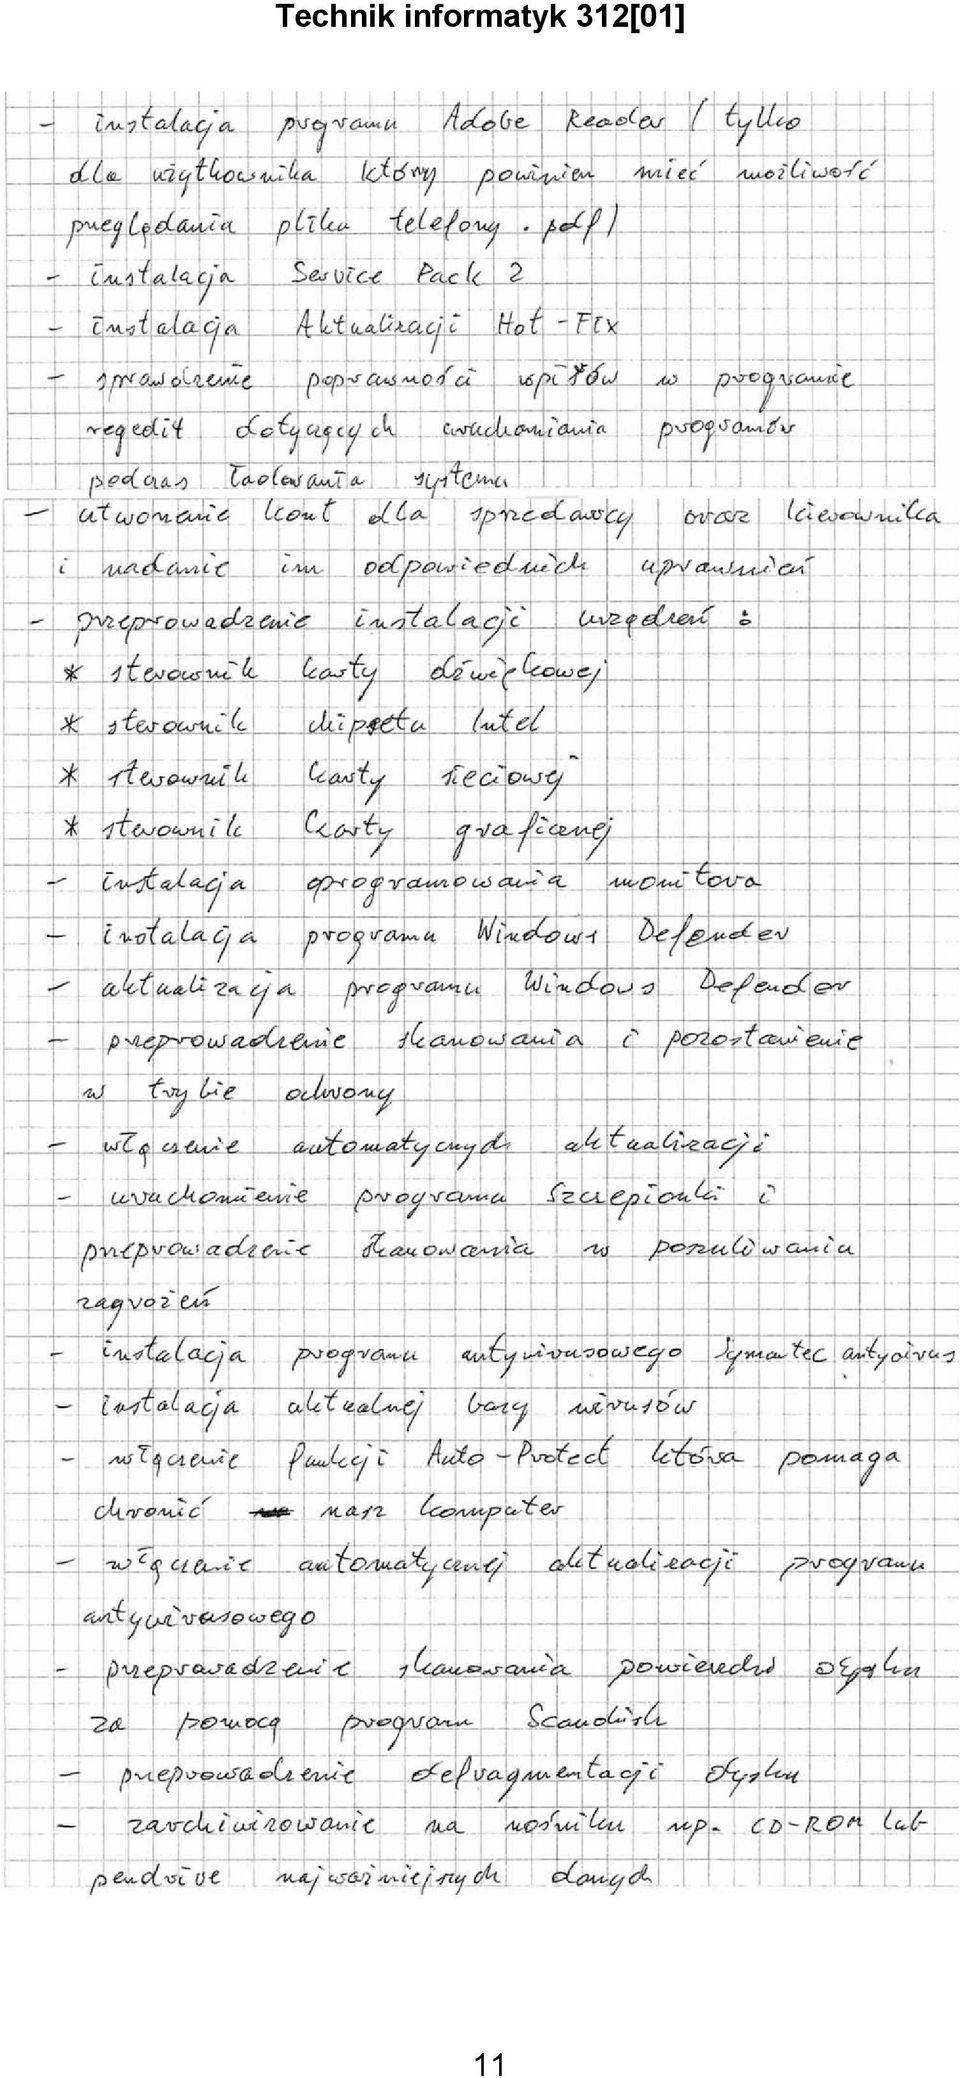 Technik informatyk 312[01]
- instalacja programu Adobe Reader / tylko
dla użytkownika który powinien mieć możliwość
przeglądania pliku telefony.pdf)
- instalacja Service Pack 2
- instalacja Aktualizacji Hot-Fix
- sprawdzenie poprawności wpisów w programie
regedit dotyczących uruchamiania programów
podczas ładowania systemu
- utworzenie kont dla sprzedawcy oraz kierownika
i nadanie im odpowiednich uprawnień
- przeprowadzenie instalacji urządzeń :
* sterownik karty dźwiękowej
* sterownik chipsetu Intel
* sterownik karty sieciowej
* sterownik karty graficznej
- instalacja oprogramowania monitora
- instalacja programu Windows Defender
- aktualizacja programu Windows Defender
- przeprowadzenie skanowania i pozostawienie
w trybie ochrony
- włączenie automatycznych aktualizacji
- uruchomienie programu Szczepionki i
przeprowadzenie skanowania w poszukiwaniu
zagrożeń
- instalacja programu antywirusowego Symantec antyvirus
- instalacja aktualnej bazy wirusów
- włączenie funkcji Auto-Protect która pomaga
chronić nasz komputer
- włączenie automatycznej aktualizacji programu
antywirusowego
- przeprowadzenie skanowania powierzchni dysku
za pomocą program Scandisk
- przeprowadzenie defragmentacji dysku
- zarchiwizowanie na nośniku np. CD-ROM lub
pendrive najważniejszych danych
11